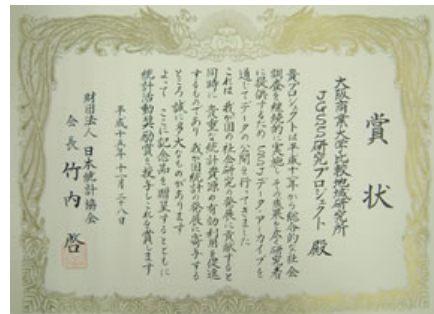 賞状
大阪商業大学比較地域研究所
JGSS研究プロジェクト 殿
貴プロジェクトは平成十一年から総合的な社会
調査を継続的に実施しその成果を広く研究者
に提供するため SSJデータ・アーカイブを
通じてデータの公開を行ってきました
これは 我が国の社会研究の発展に貢献すると
同時に 貴重な統計資源の有効利用を促進
するものであり 我が国統計の発展に寄与する
ところ 誠に多大なものがあります
よって ここに記念品を贈呈するとともに
統計活動奨励賞を授与しこれを賞します
平成十五年十一月二十八日
財団法人 日本統計協会
会長 竹内 啓